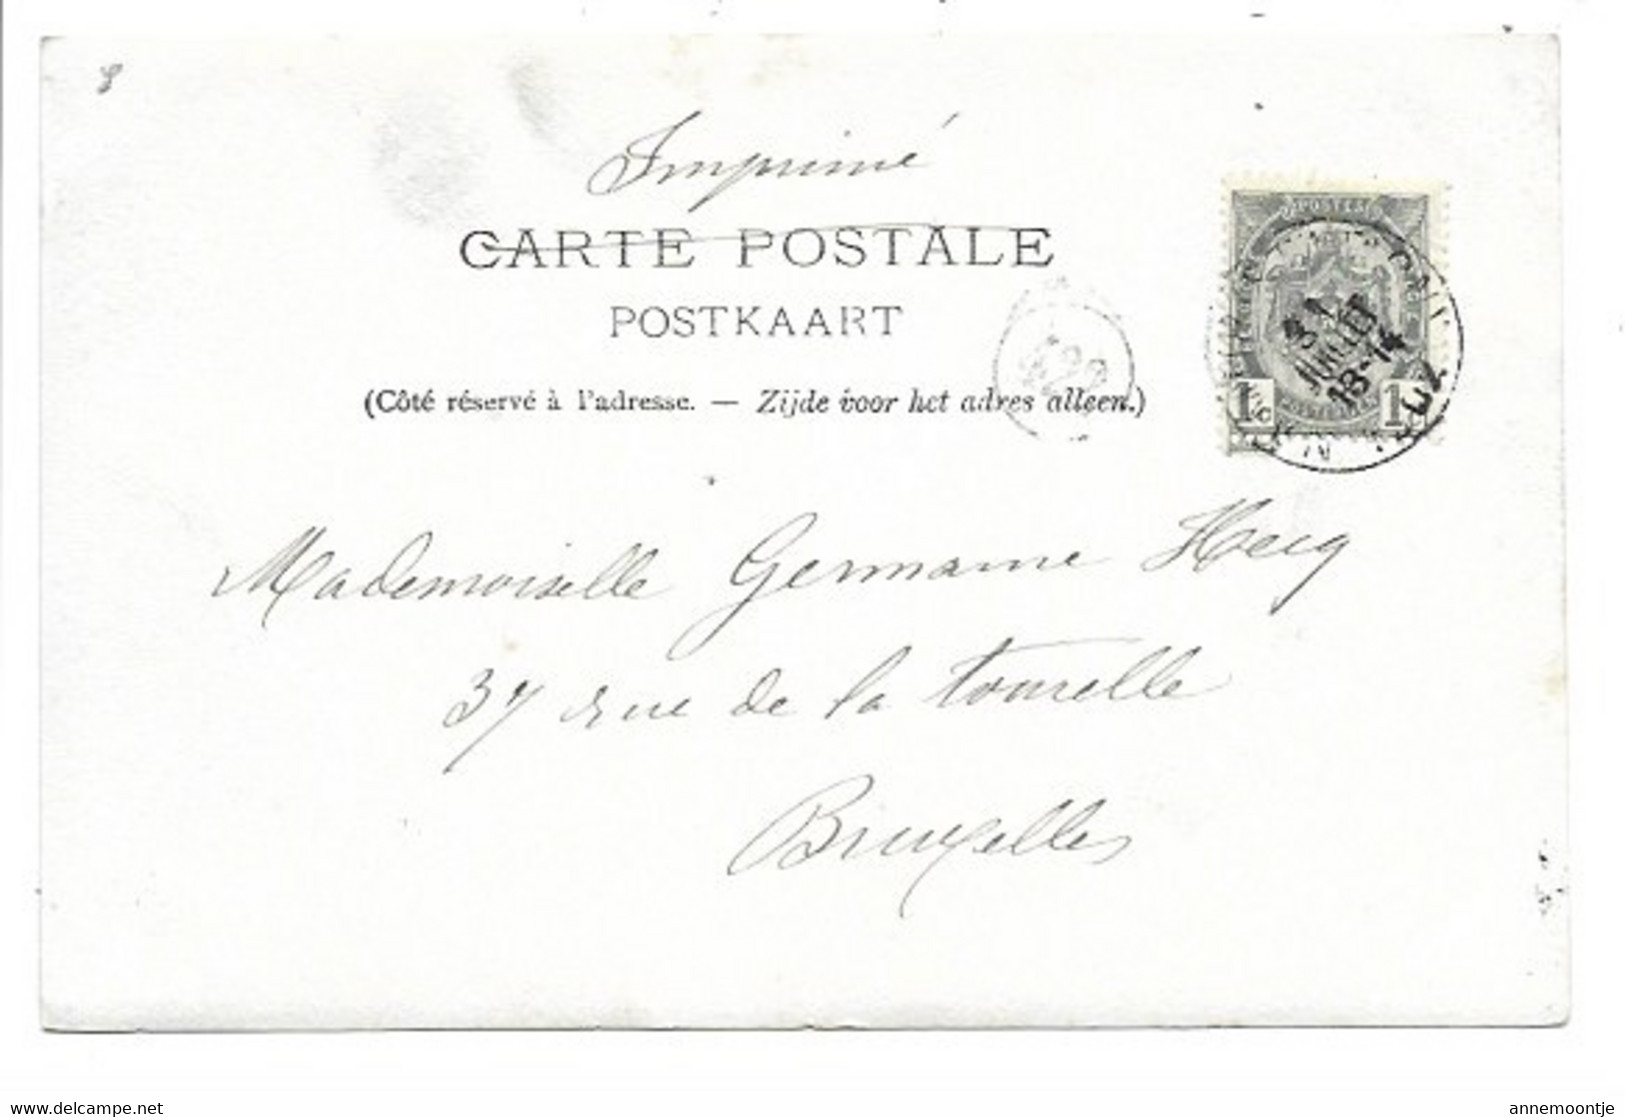 Imprimé
CARTE POSTALE
POSTKAART
(Côté réservé à l'adresse. — Zijde voor het adres alleen.)
POSTES
1c 1c
31
JUILLET
18-19
422
Mademoiselle Germaine Hecq
37 rue de la tourelle
Bruxelles
www.delcampe.net
annemoontje